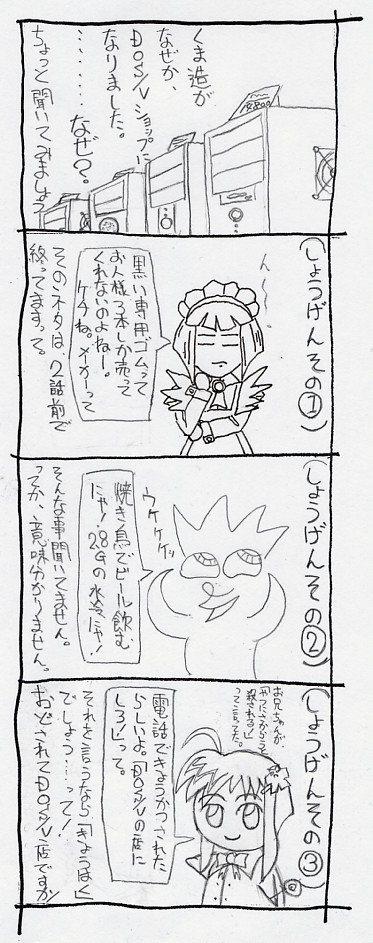 くま造が
なぜか、
DOS/Vショップに
なりました。
………なぜ?
ちょっと聞いてみましょう
しょうげんその①
ん〜
黒い専用ゴムって
お人様3本しか売って
くれないのよねー。
ケチね。メーカーって
そのネタは、2話前で
終ってますって。
しょうげんその②
ウケケケッ
焼き鳥でビール飲む
にゃ!2.8Gの水冷にゃ!
そんな事聞いてません。
ってか、意味分かりません。
しょうげんその③
お兄ちゃんが、
って言ってた。
電話できょうかつされた
らしいよ。「DOS/Vの店に
しろ」って。
それを言うなら「きょうはく」
でしょう……って!
おどされてDOS/V店ですか